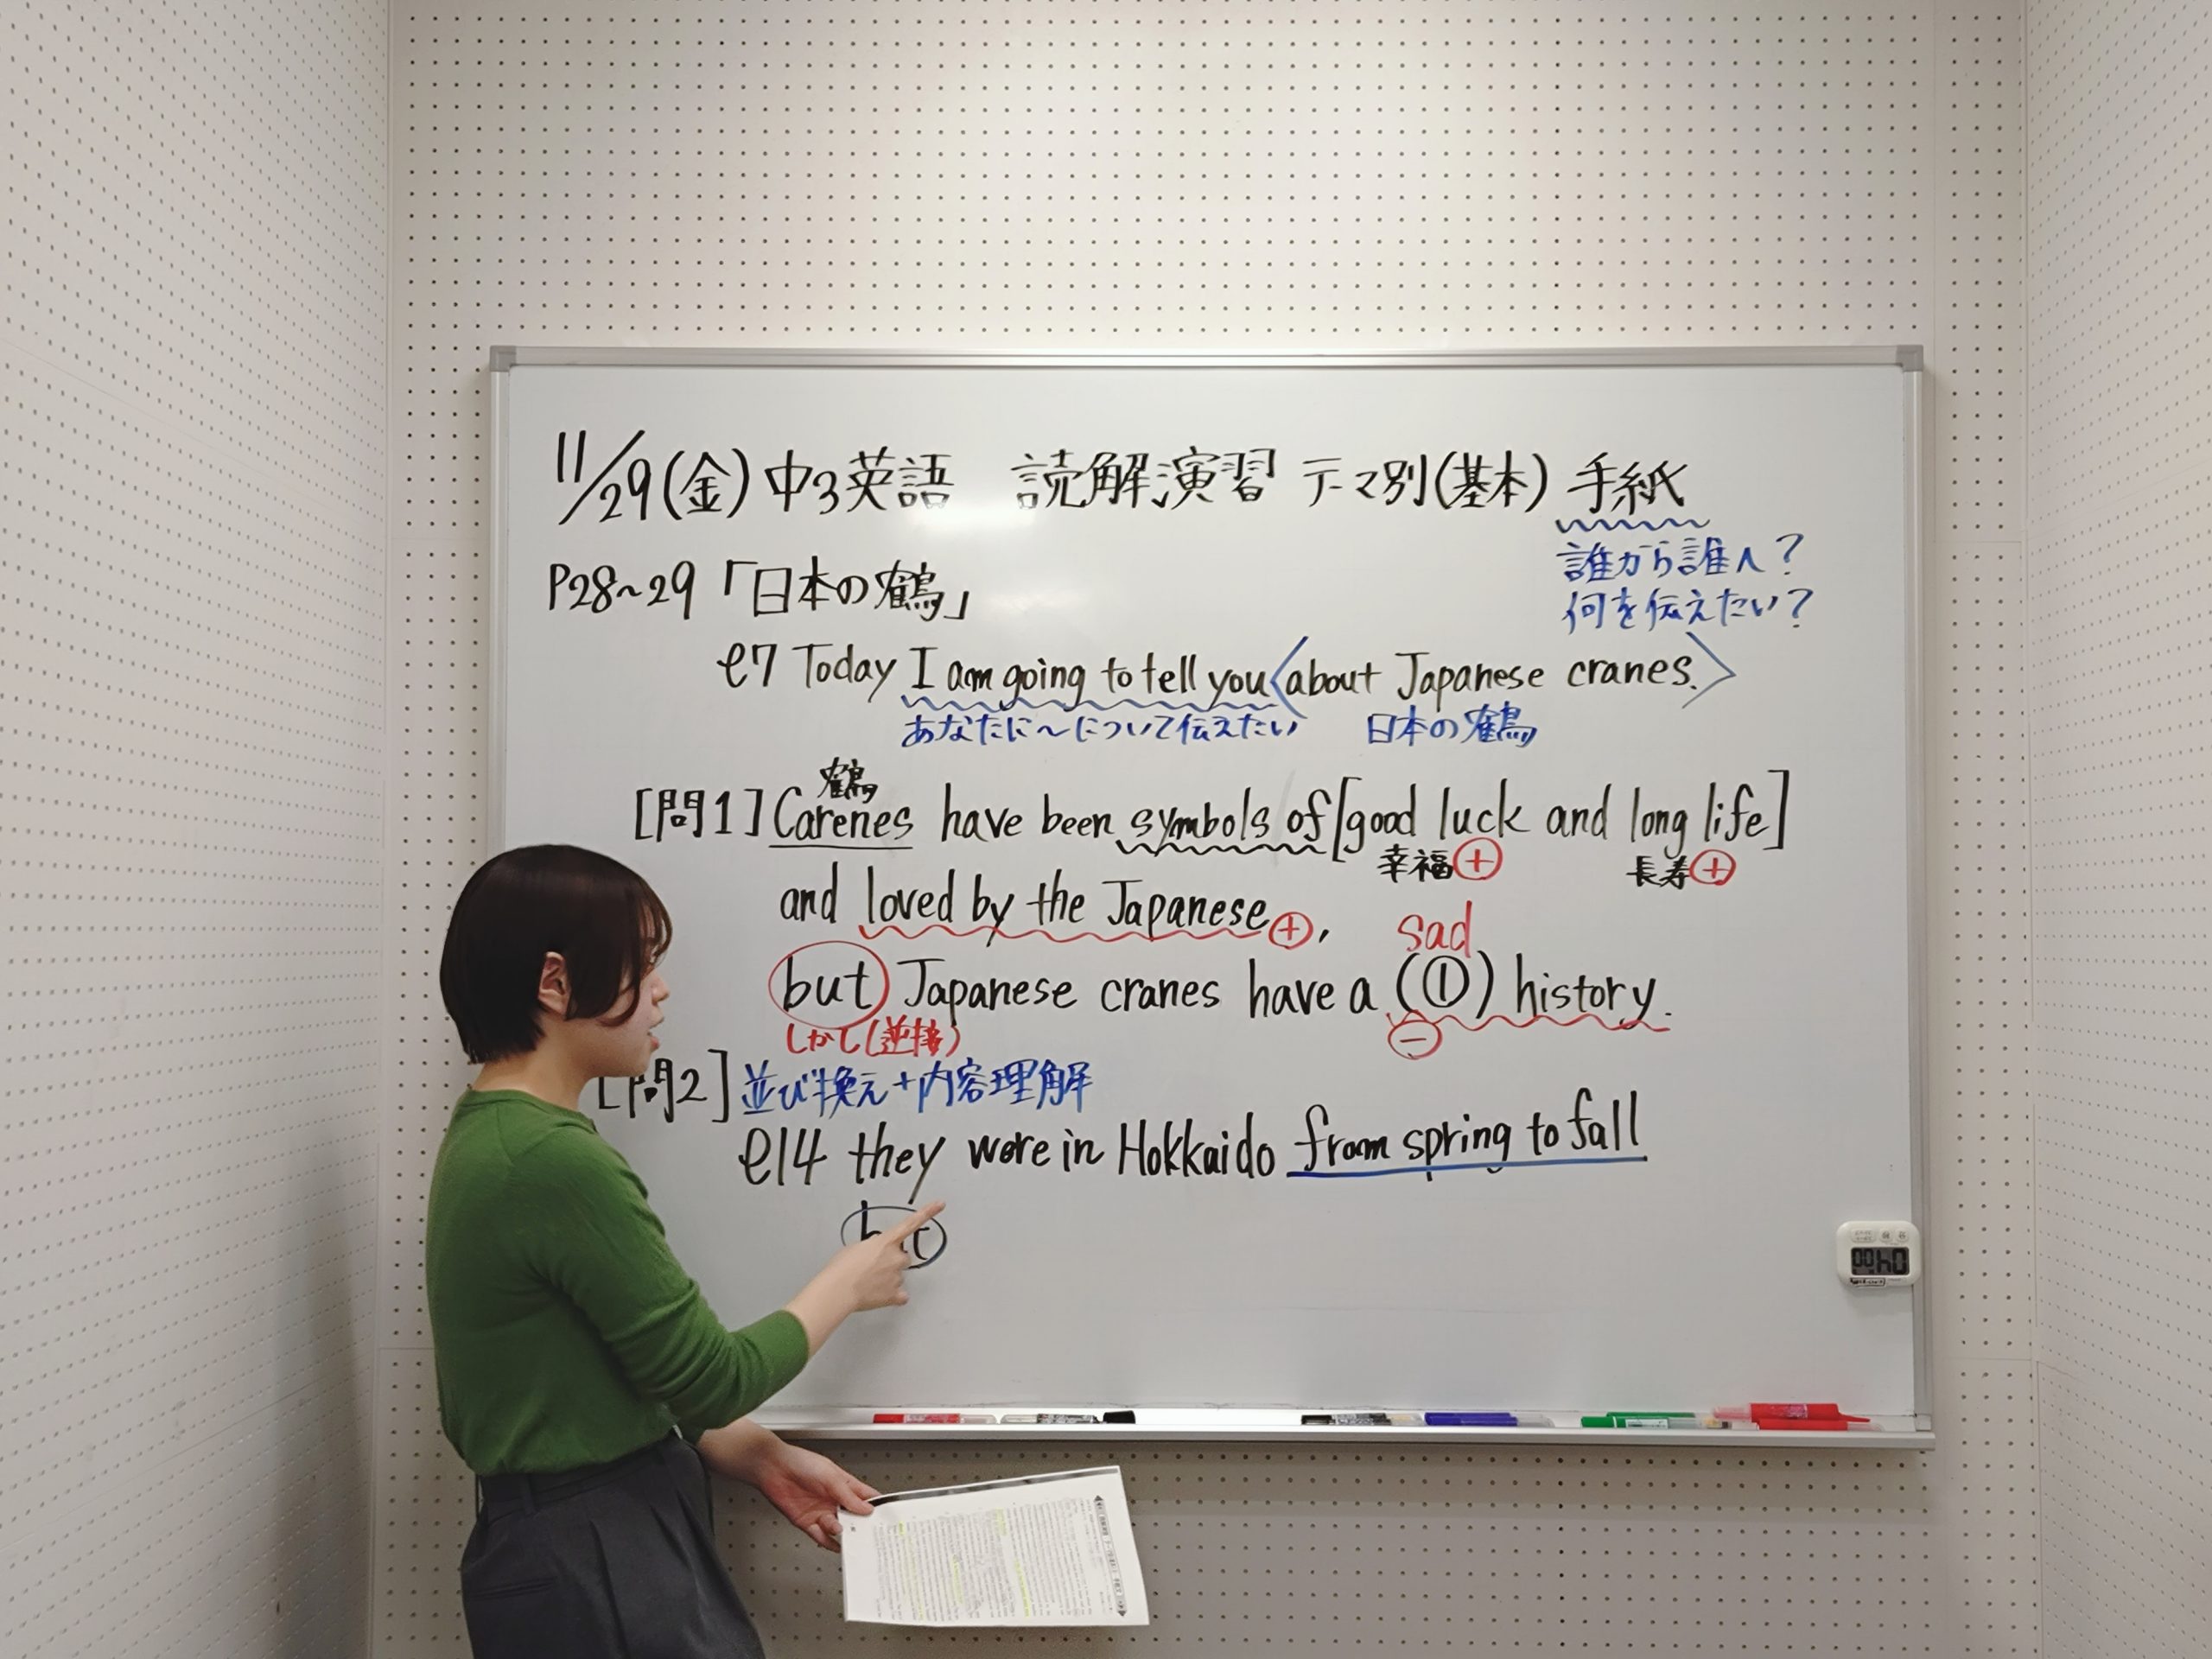 11/29(金)中3英語 読解演習 テーマ別(基本) 手紙
誰から誰へ?
何を伝えたい?
P28~29「日本の鶴」
ℓ7 Today I am going to tell you〈about Japanese cranes.〉
あなたに~について伝えたい 日本の鶴
鶴
[問1] Carenes have been symbols of [good luck and long life]
幸福⊕ 長寿⊕
and loved by the Japanese⊕,
sad
but Japanese cranes have a (①) history.
しかし(逆接) ⊖
[問2] 並び換え+内容理解
ℓ14 they were in Hokkaido from spring to fall